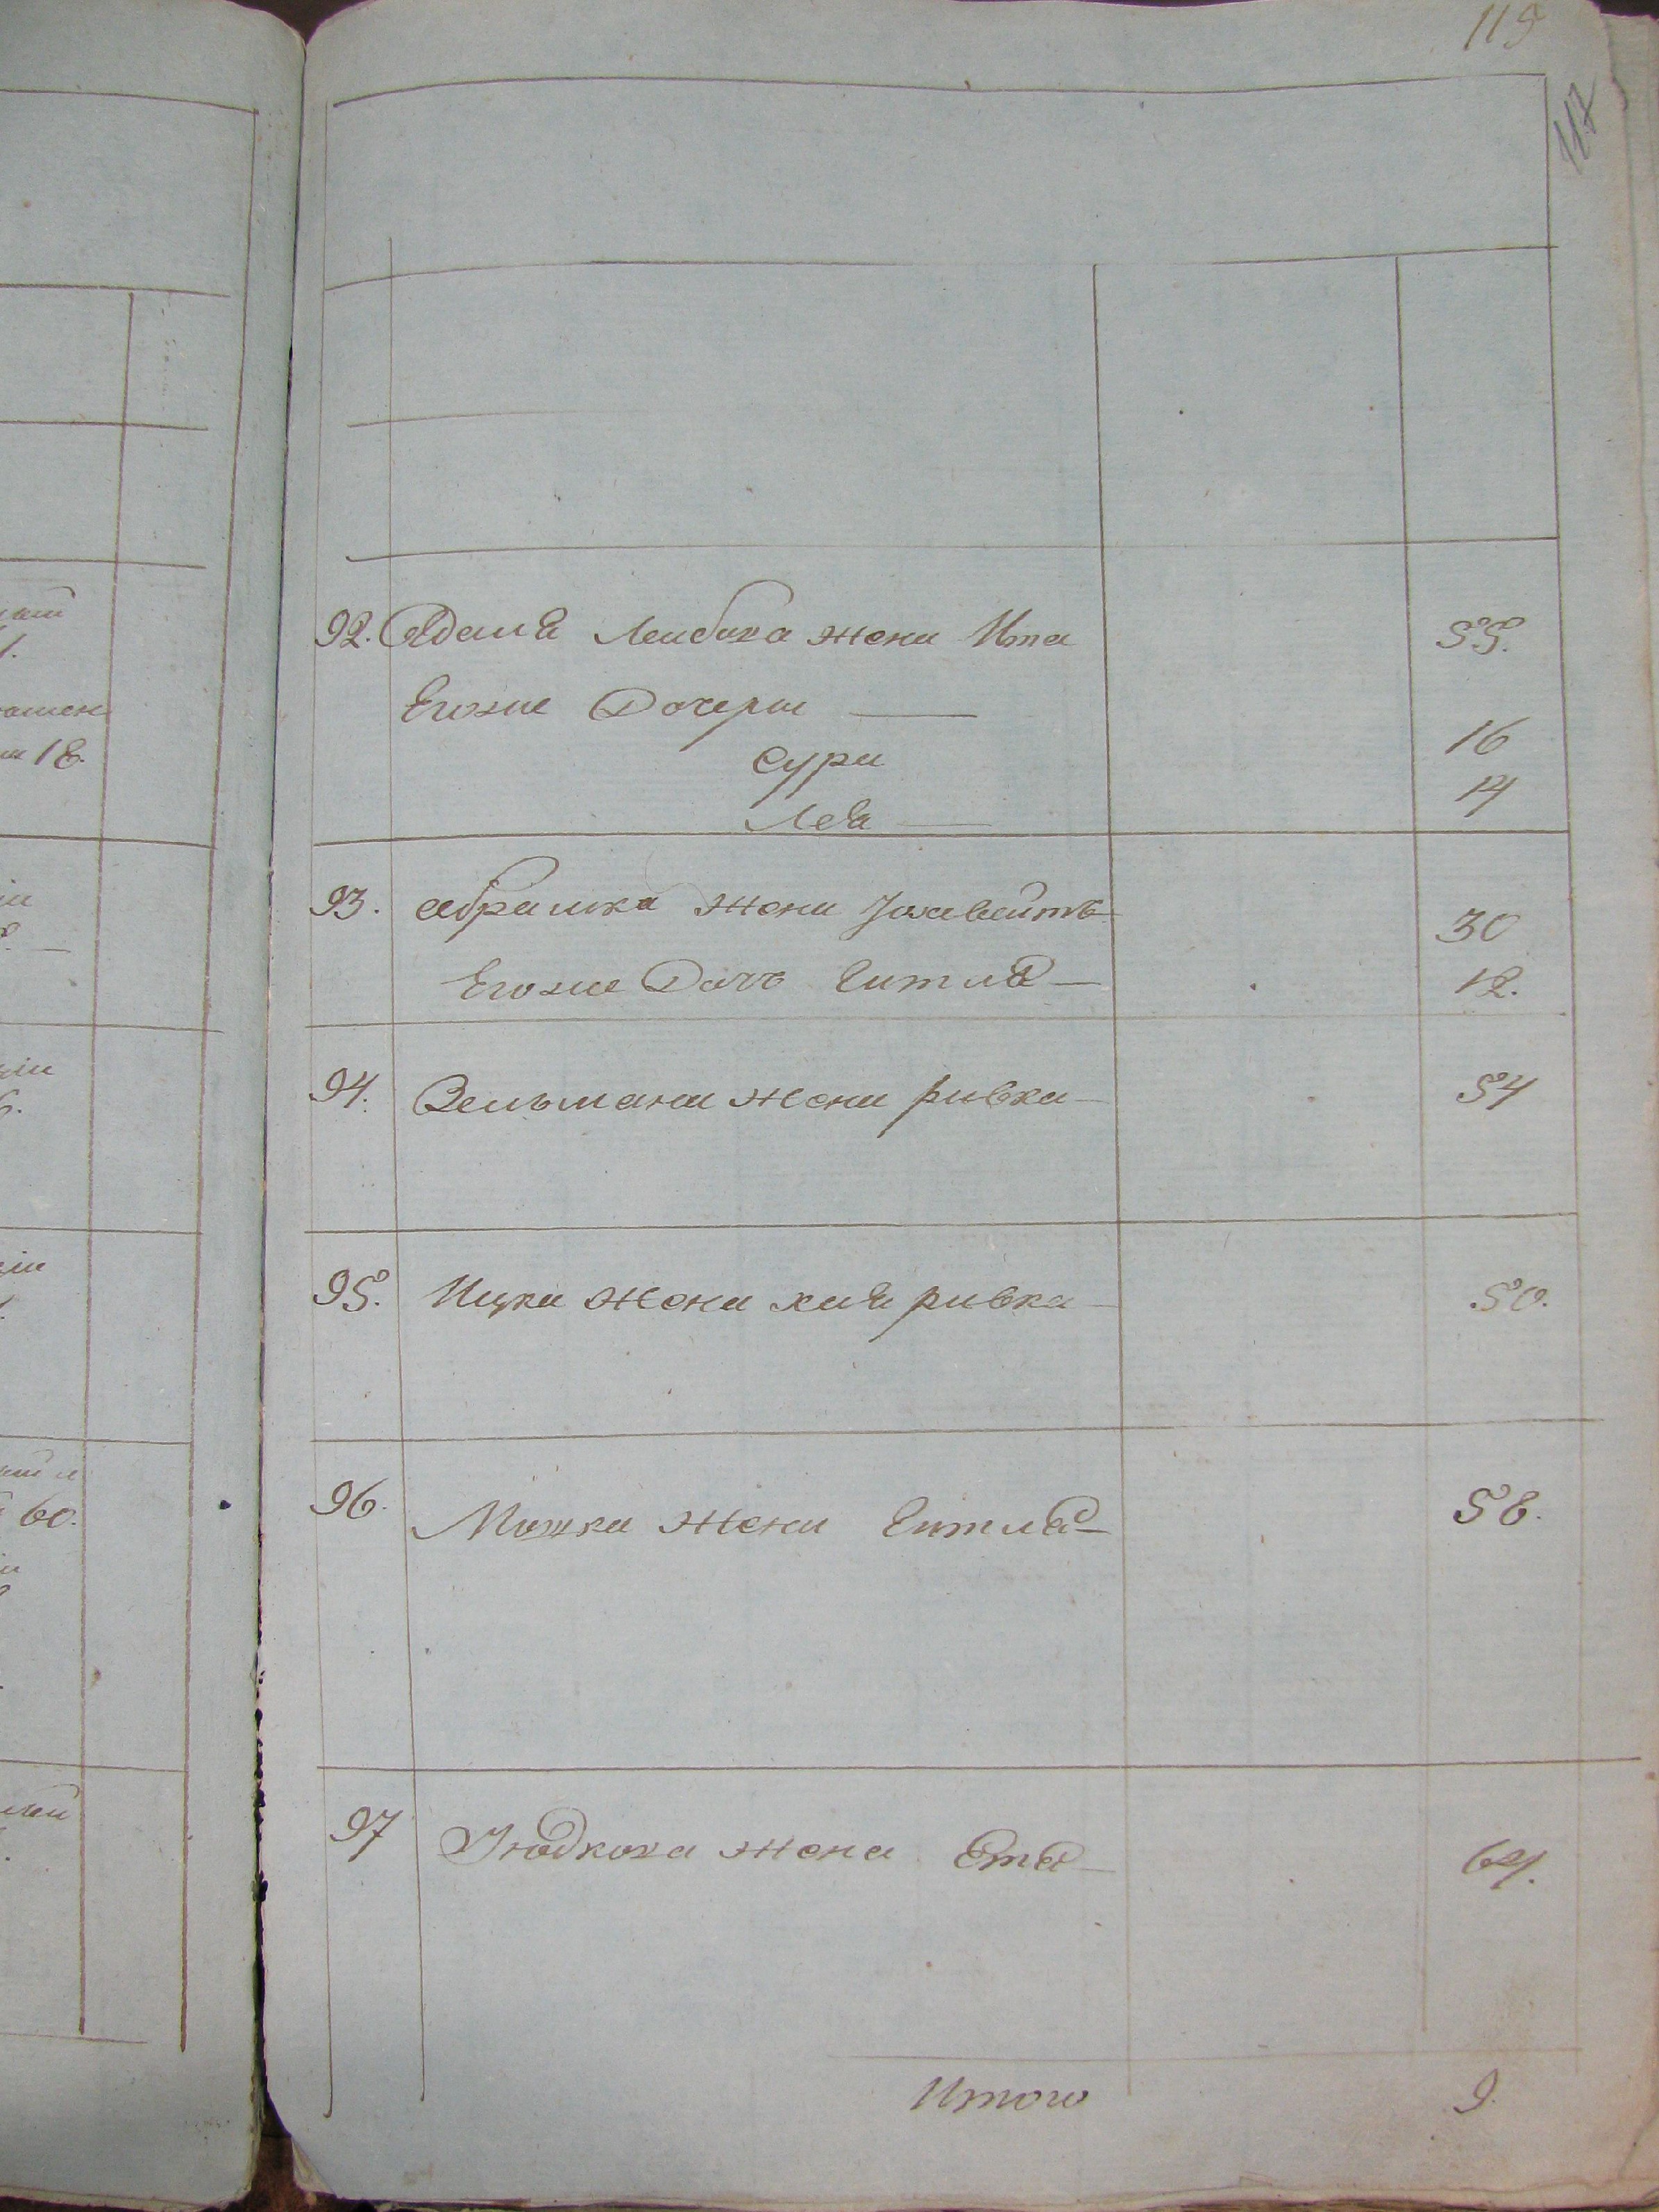 119
117
92. Адама Лейбова жена Ита 55.
Егоже Дочери
Сура 16
Лея 14
93. Абрамка жена 30
Егоже Дочь Ентля 12.
94. Зельмана жена ривка 54
95. Ицка жена хая ривка 50.
96. Мошка жена Ентля 58.
97 Юдкова жена Етя 64.
Итого 9.